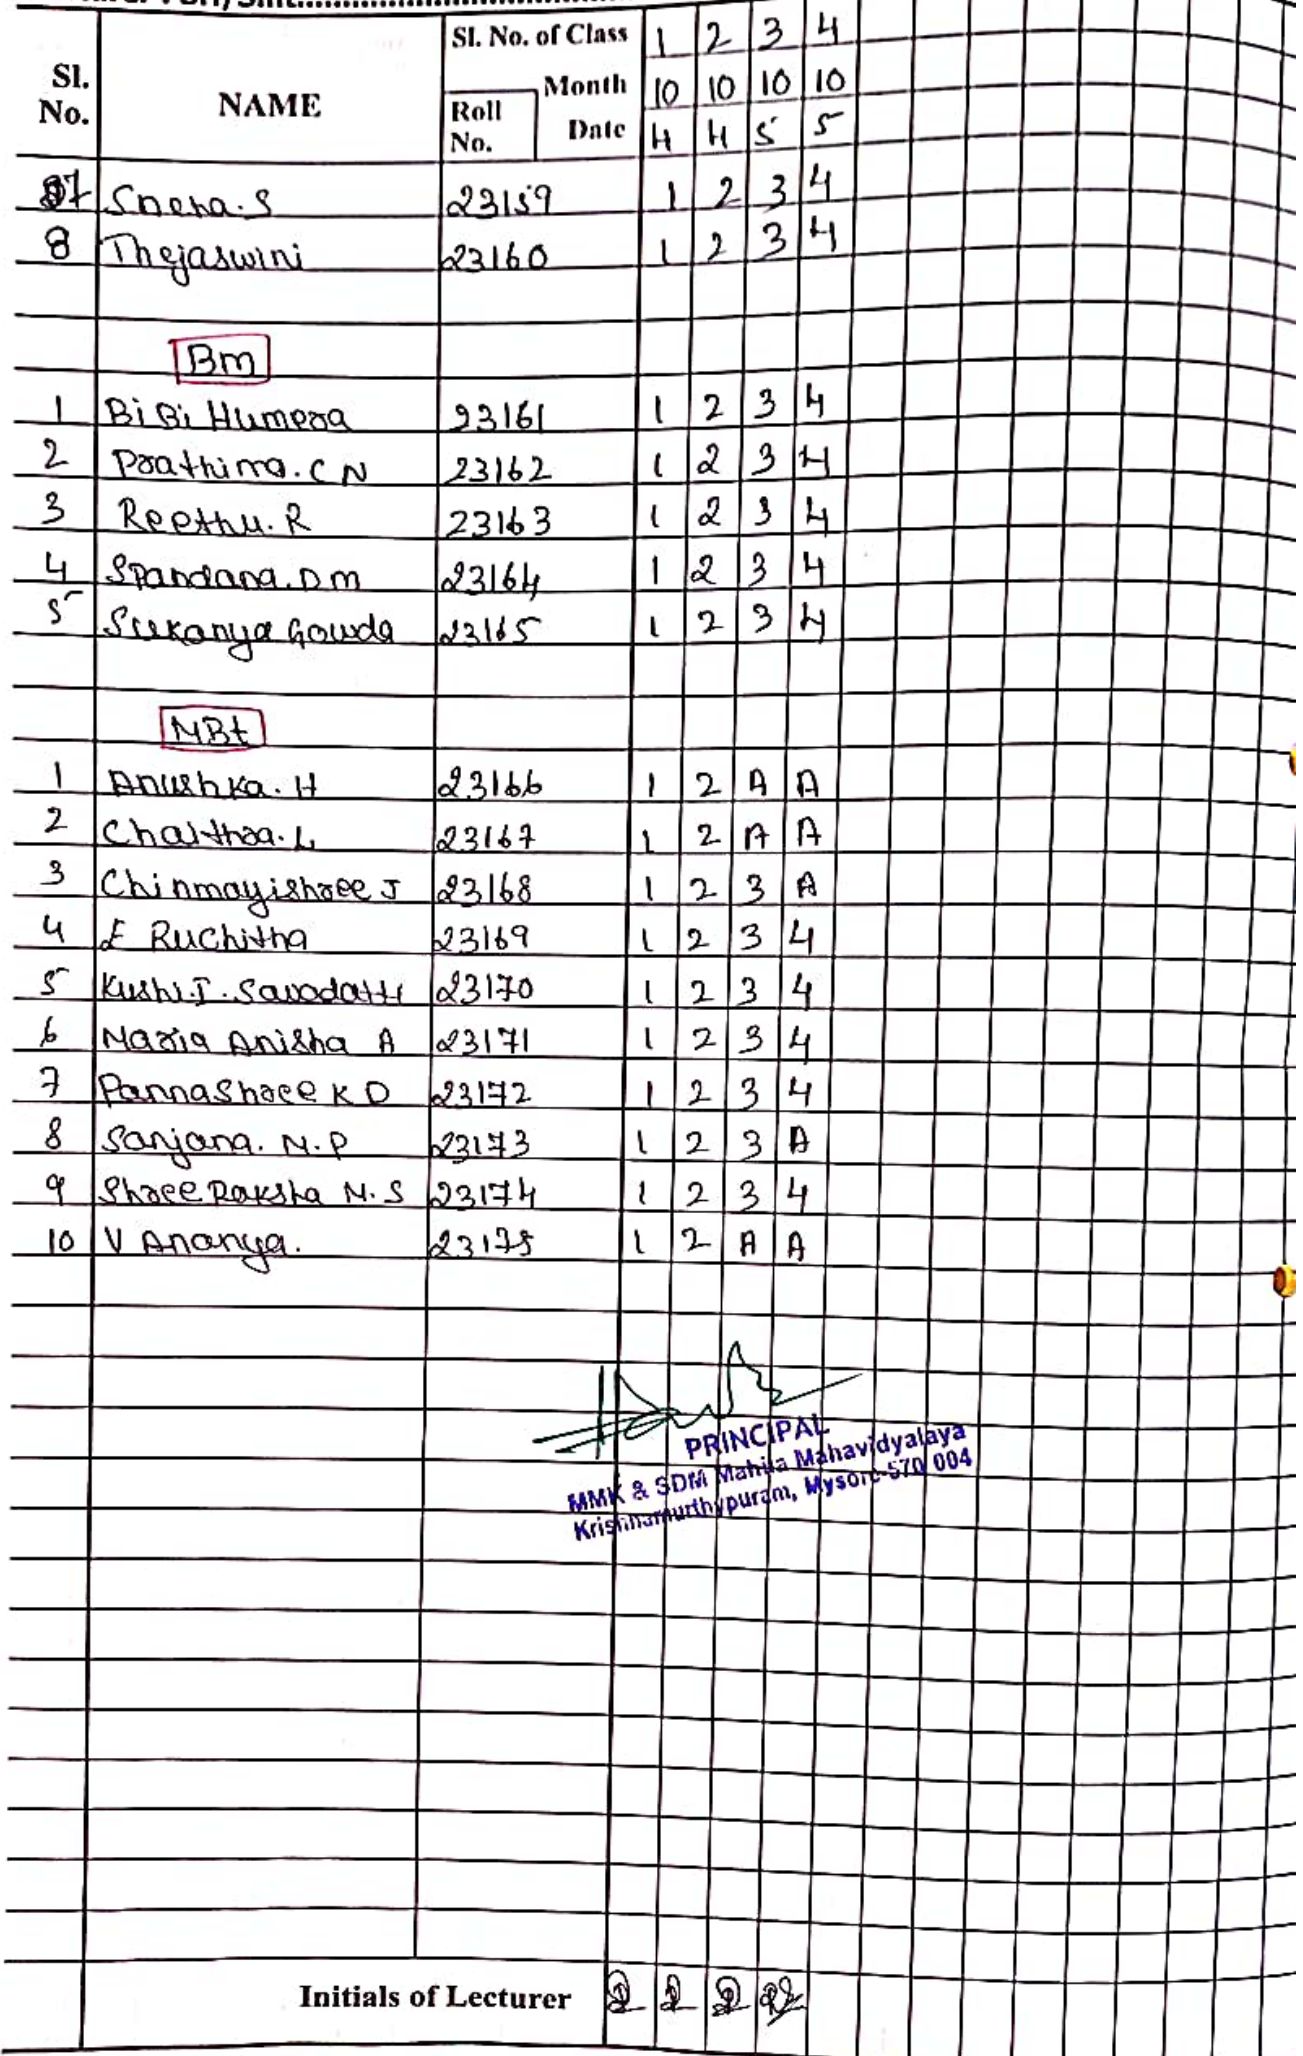 Sl. No. of Class 1 2 3 4
Sl. No. NAME Roll No. Month 10 10 10 10
Date 4 4 5 5
7 Sneha.S 23159 1 2 3 4
8 Thejaswini 23160 1 2 3 4
Bm
1 BiBi Humera 23161 1 2 3 4
2 Prathima.C N 23162 1 2 3 4
3 Reethu.R 23163 1 2 3 4
4 Spandana.D m 23164 1 2 3 4
5 Sukanya Gowda 23165 1 2 3 4
MBt
1 Anushka.H 23166 1 2 A A
2 Chaithra.L 23167 1 2 A A
3 Chinmayishree J 23168 1 2 3 A
4 E Ruchitha 23169 1 2 3 4
5 Kushi.I.Savadatti 23170 1 2 3 4
6 Maria Anisha A 23171 1 2 3 4
7 PannaShree K D 23172 1 2 3 4
8 Sanjana.M.P 23173 1 2 3 A
9 Shree Raksha M.S 23174 1 2 3 4
10 V Ananya. 23175 1 2 A A
PRINCIPAL
MMK & SDM Mahila Mahavidyalaya
Krishnamurthypuram, Mysore-570 004
Initials of Lecturer